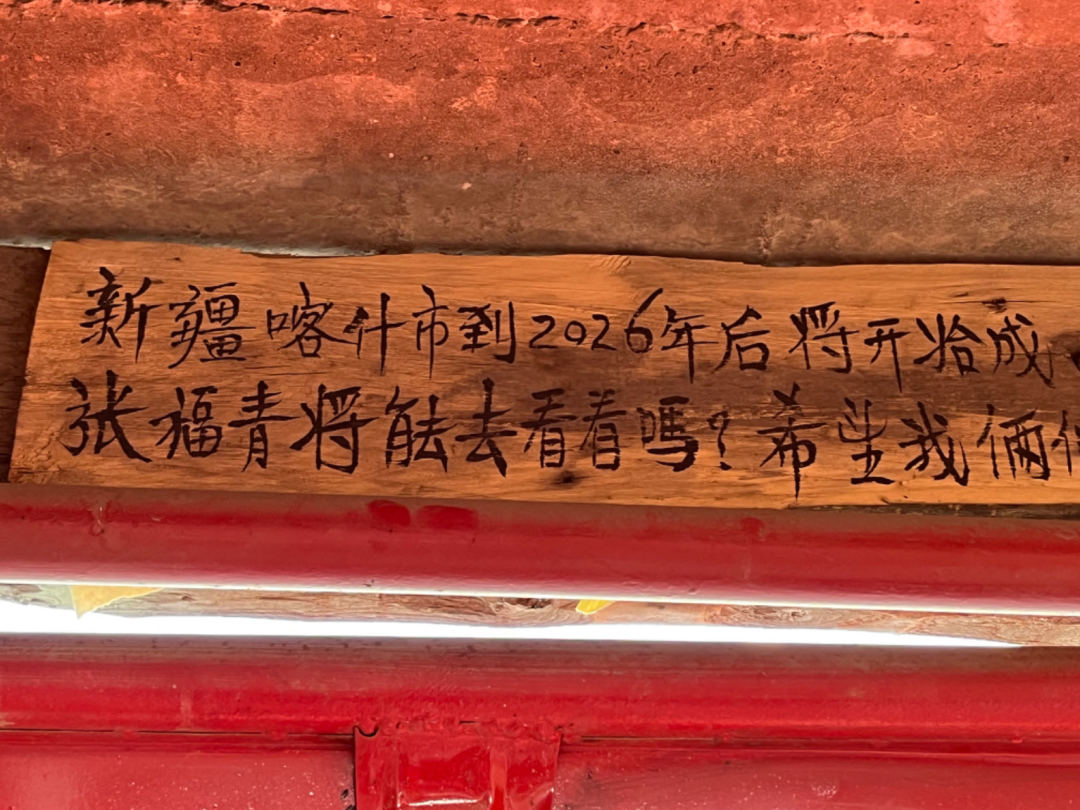 新疆喀什市到2026年后将开始成
张福青将能去看着嗎?希望我俩